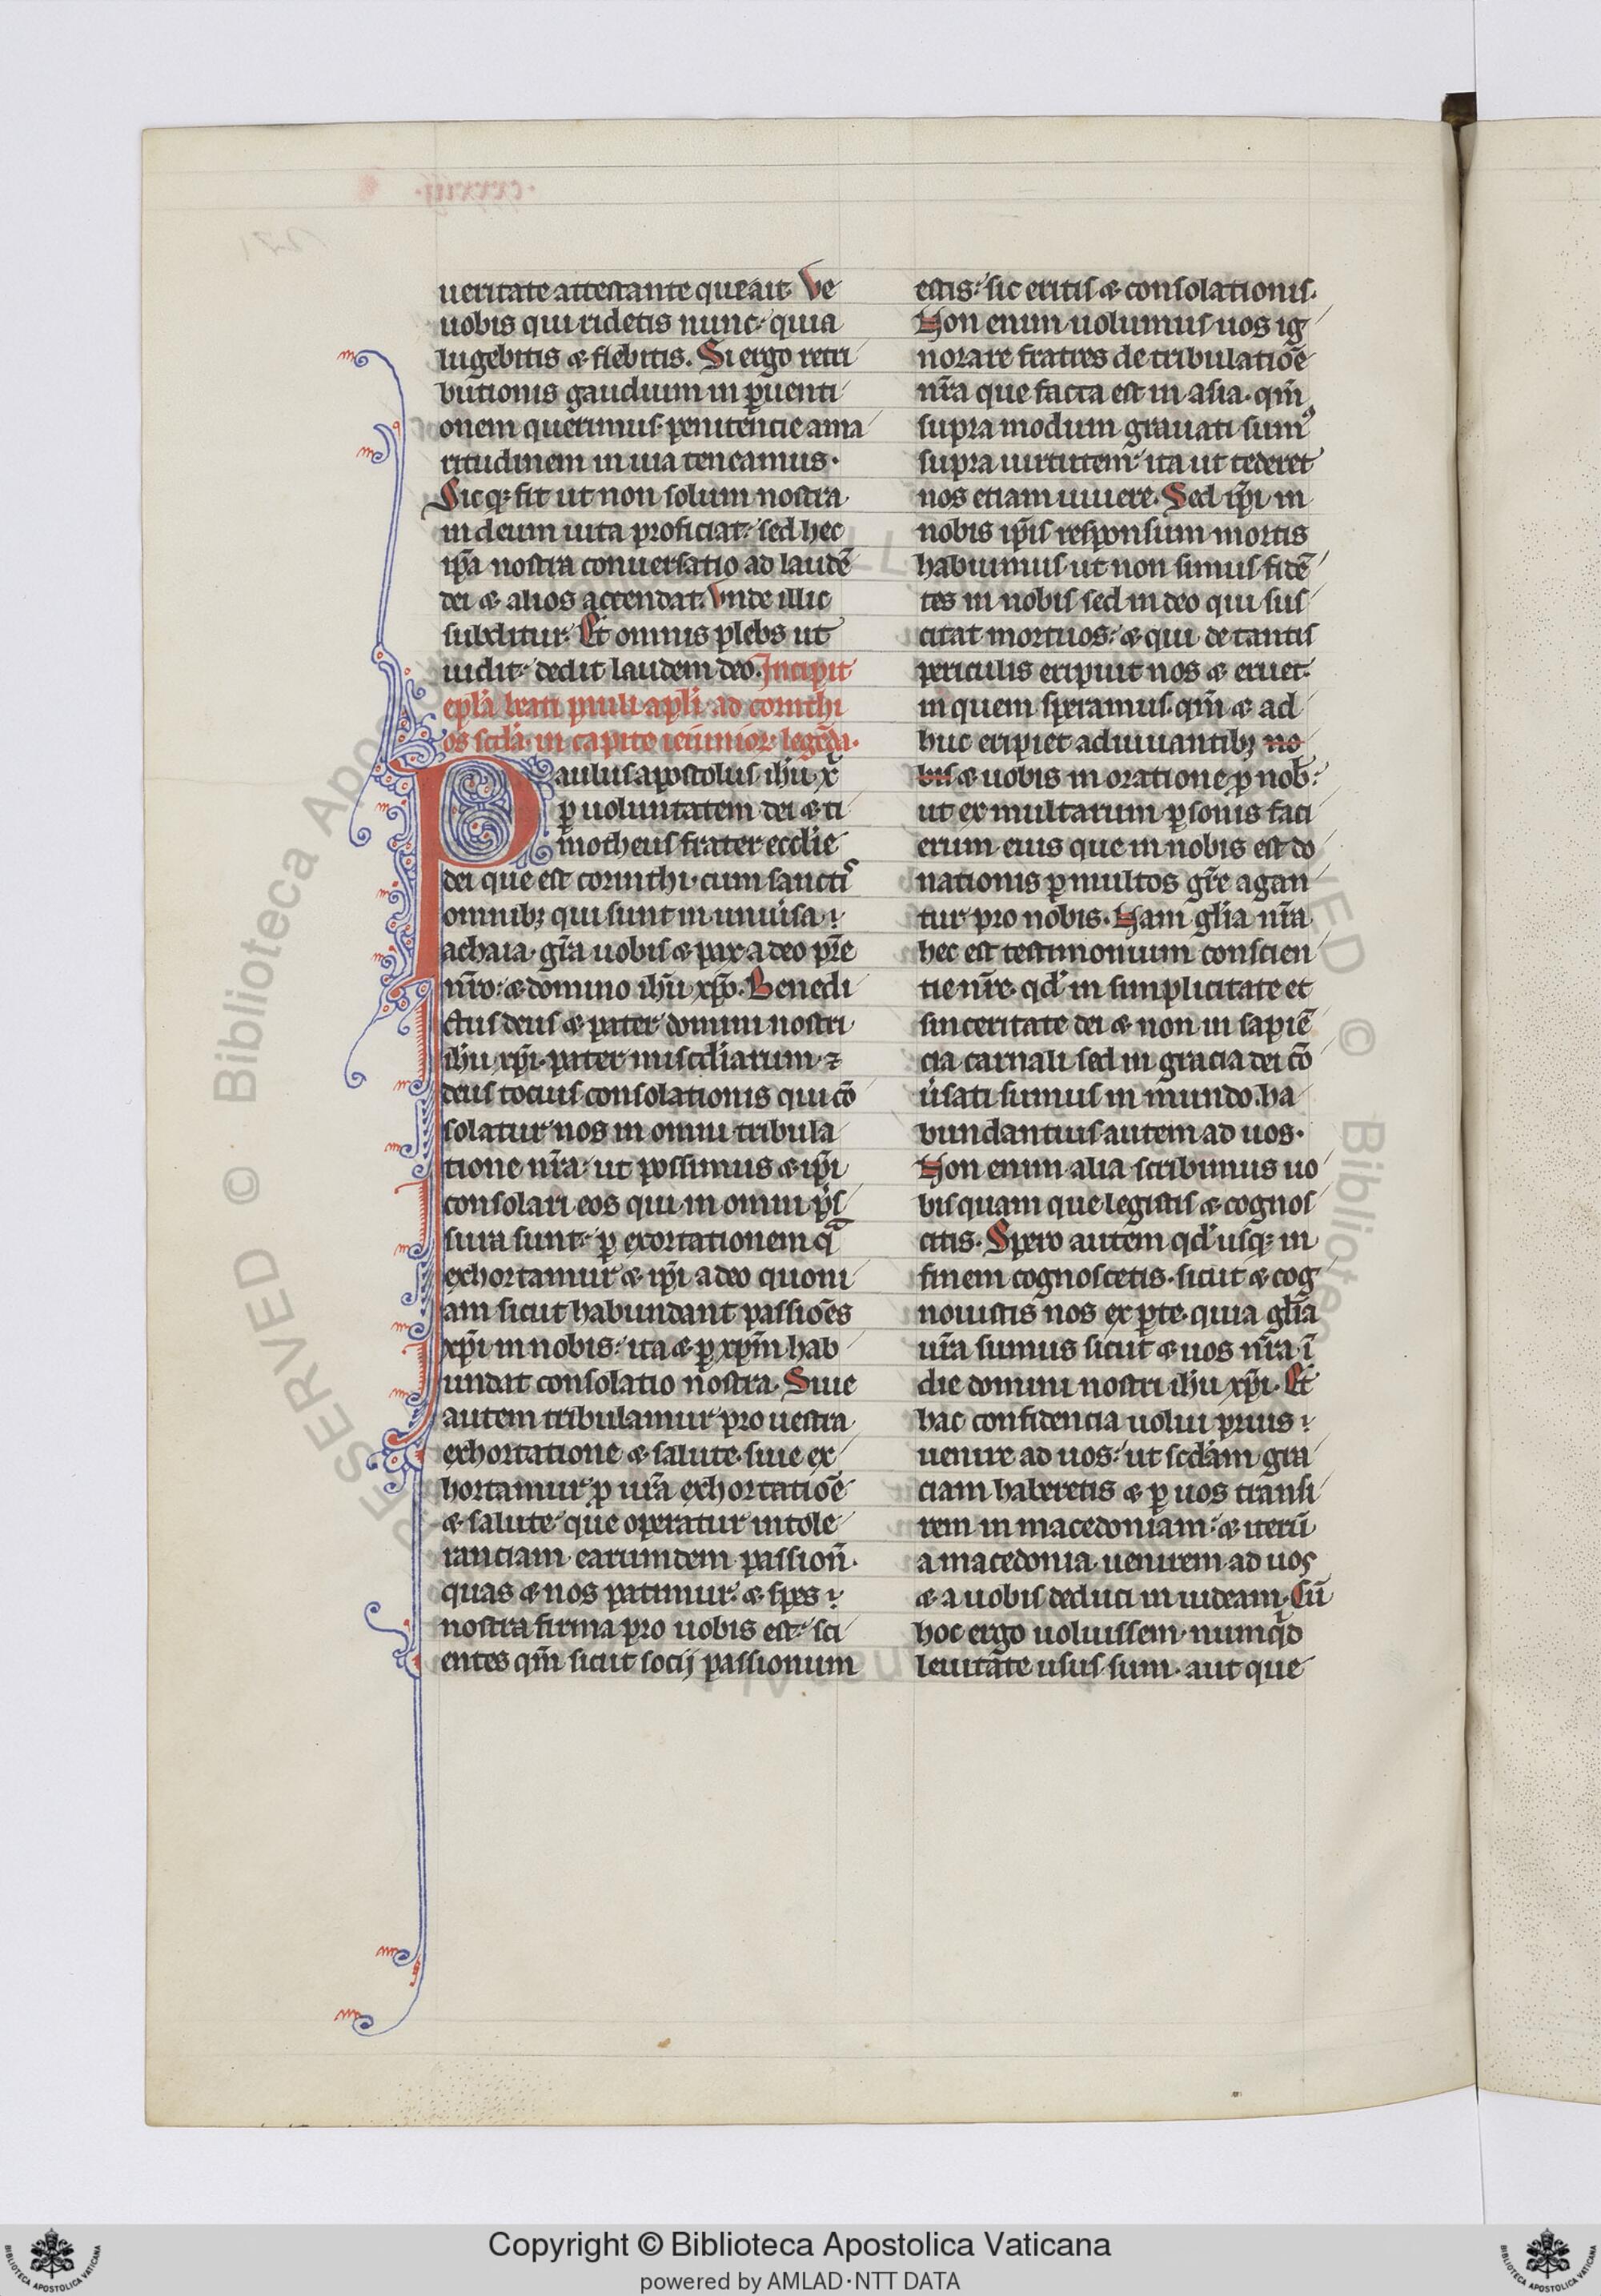 ueritate attestante que ait. Ve
uobis qui ridetis nunc. quia
lugebitis ⁊ flebitis. Si ergo retri
butionis gaudium in ꝑuenti
onem querimus. penitencie ama
ritudinem in uia teneamus.
Sicq; fit ut non solum nostra
in deum uita proficiat. sed hec
ip̄a nostra conuersatio ad laudē
dei ⁊ alios accendat. Vnde illic
subditur. Et omnis plebs ut
uidit. dedit laudem deo. Incipit
ep̄la beati pauli apl̄i ad corinthi
os scd̄a. in capite ieiunior. legēda.
Paulus apostolus ih̄u xͥ
ꝑ uoluntatem dei ⁊ ti
motheus frater eccl̄ie
dei que est corinthi. cum sanctis
omnib; qui sunt in uniu̾sa
achaia. gr̄a uobis ⁊ pax a deo pr̄e
nr̄o. ⁊ domino ih̄u xp̄o. Benedi
ctus deus ⁊ pater domini nostri
ih̄u xp̄i. pater misc̄diarum ⁊
deus tocius consolationis qui cō
solatur nos in omni tribula
tione nr̄a. ut possimus ⁊ ip̄i
consolari eos qui in omni p̾s
sura sunt. ꝑ exortationem qᵃ
exhortamur ⁊ ip̄i a deo quoni
am sicut habundant passiōes
xp̄i in nobis. ita ⁊ ꝑ xp̄m hab
undat consolatio nostra. Siue
autem tribulamur pro uestra
exhortatione ⁊ salute. siue ex
hortamur ꝑ ur̄a exhortatiōe
⁊ salute que operatur in tole
ranciam earumdem passion̄.
quas ⁊ nos patimur. ⁊ spes
nostra firma pro uobis est. sci
entes qm̄ sicut socij passionum
estis. sic eritis ⁊ consolationis.
Non enim uolumus uos ig
norare fratres de tribulatiōe
nr̄a que facta est in asia. qm̄
supra modum grauati sumꝰ
supra uirtutem. ita ut tederet
nos etiam uiuere. Sed ip̄i in
nobis ip̄is responsum mortis
habuimus. ut non simus fidē
tes in nobis sed in deo qui sus
citat mortuos. ⁊ qui de tantis
periculis eripuit nos ⁊ eruet.
in quem speramus. qm̄ ⁊ ad
huc eripiet adiuuantib; no
bis ⁊ uobis in oratione ꝓ nob̄.
ut ex multarum ꝑsonis faci
erum eius que in nobis est do
nationis ꝑ multos gr̄e agan
tur pro nobis. Nam gl̄ia nr̄a
hec est testimonium conscien
tie nr̄e. qd̾ in simplicitate et
sinceritate dei ⁊ non in sapiē
cia carnali sed in gracia dei cō
u̾sati sumus in mundo. ha
bundantius autem ad uos.
Non enim alia scribimus uo
bis quam que legistis ⁊ cognos
citis. Spero autem qd̾ usq; in
finem cognoscetis. sicut ⁊ cog
nouistis nos ex ꝑte. quia gl̄ia
ur̄a sumus sicut ⁊ uos nr̄a ī
die domini nostri ih̄u xp̄i. Et
hac confidencia uolui prius
uenire ad uos. ut scd̄am gra
ciam haberetis ⁊ ꝑ uos transi
rem in macedoniam. ⁊ iterū
a macedonia uenirem ad uos
⁊ a uobis deduci in iudeam. Cū
hoc ergo uoluissem. numqͥd
leuitate usus sum. aut que
Copyright © Biblioteca Apostolica Vaticana
powered by AMLAD·NTT DATA